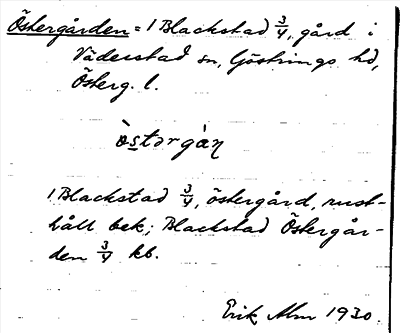 Östergården = 1 Blackstad 3/4, gård i
Väderstad sn, Göstrings hd,
Österg. l.
òstərgàn̥
1 Blackstad 3/4, östergård, rust-
håll bek; Blackstad Östergår-
den 3/4 kb.
Erik Alm 1930.